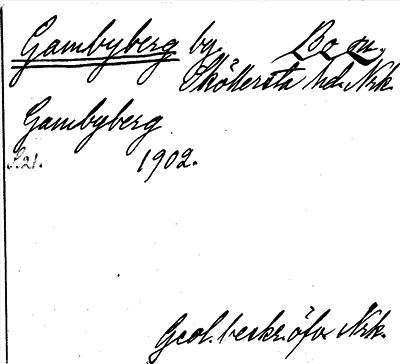 Gambyberg by. Bo sn.
Sköllersta hd. Nrk.
Gambyberg
S. 21. 1902.
Geol. beskr. öfv. Nrk.